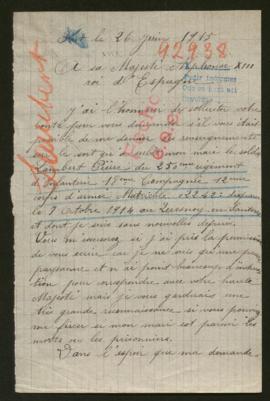 le 26 Juin 1915
42938
A sa Majesté Alphonse XIII
roi d'Espagne
Lambert
J'ai l'honneur de solliciter votre
bonté pour vous demander s'il vous était
possible de me donner des renseignements
sur le sort qu'a subi mon mari le soldat
Lambert Pierre du 250ème régiment
d'Infanterie 18ème Compagnie 12ème
corps d'armée Matricule 2242 disparu
le 7 Octobre 1914 au
et dont je suis sans nouvelles depuis.
Vous m'excuserez si j'ai pris la permission
de vous écrire car je ne suis qu'une pauvre
paysanne et n'ai point beaucoup d'instruc
tion pour correspondre avec votre haute
Majesté mais je vous garderais une
très grande reconnaissance si vous pouviez
me fixer si mon mari est parmi les
morts ou les prisonniers.
Dans l'espoir que ma demande